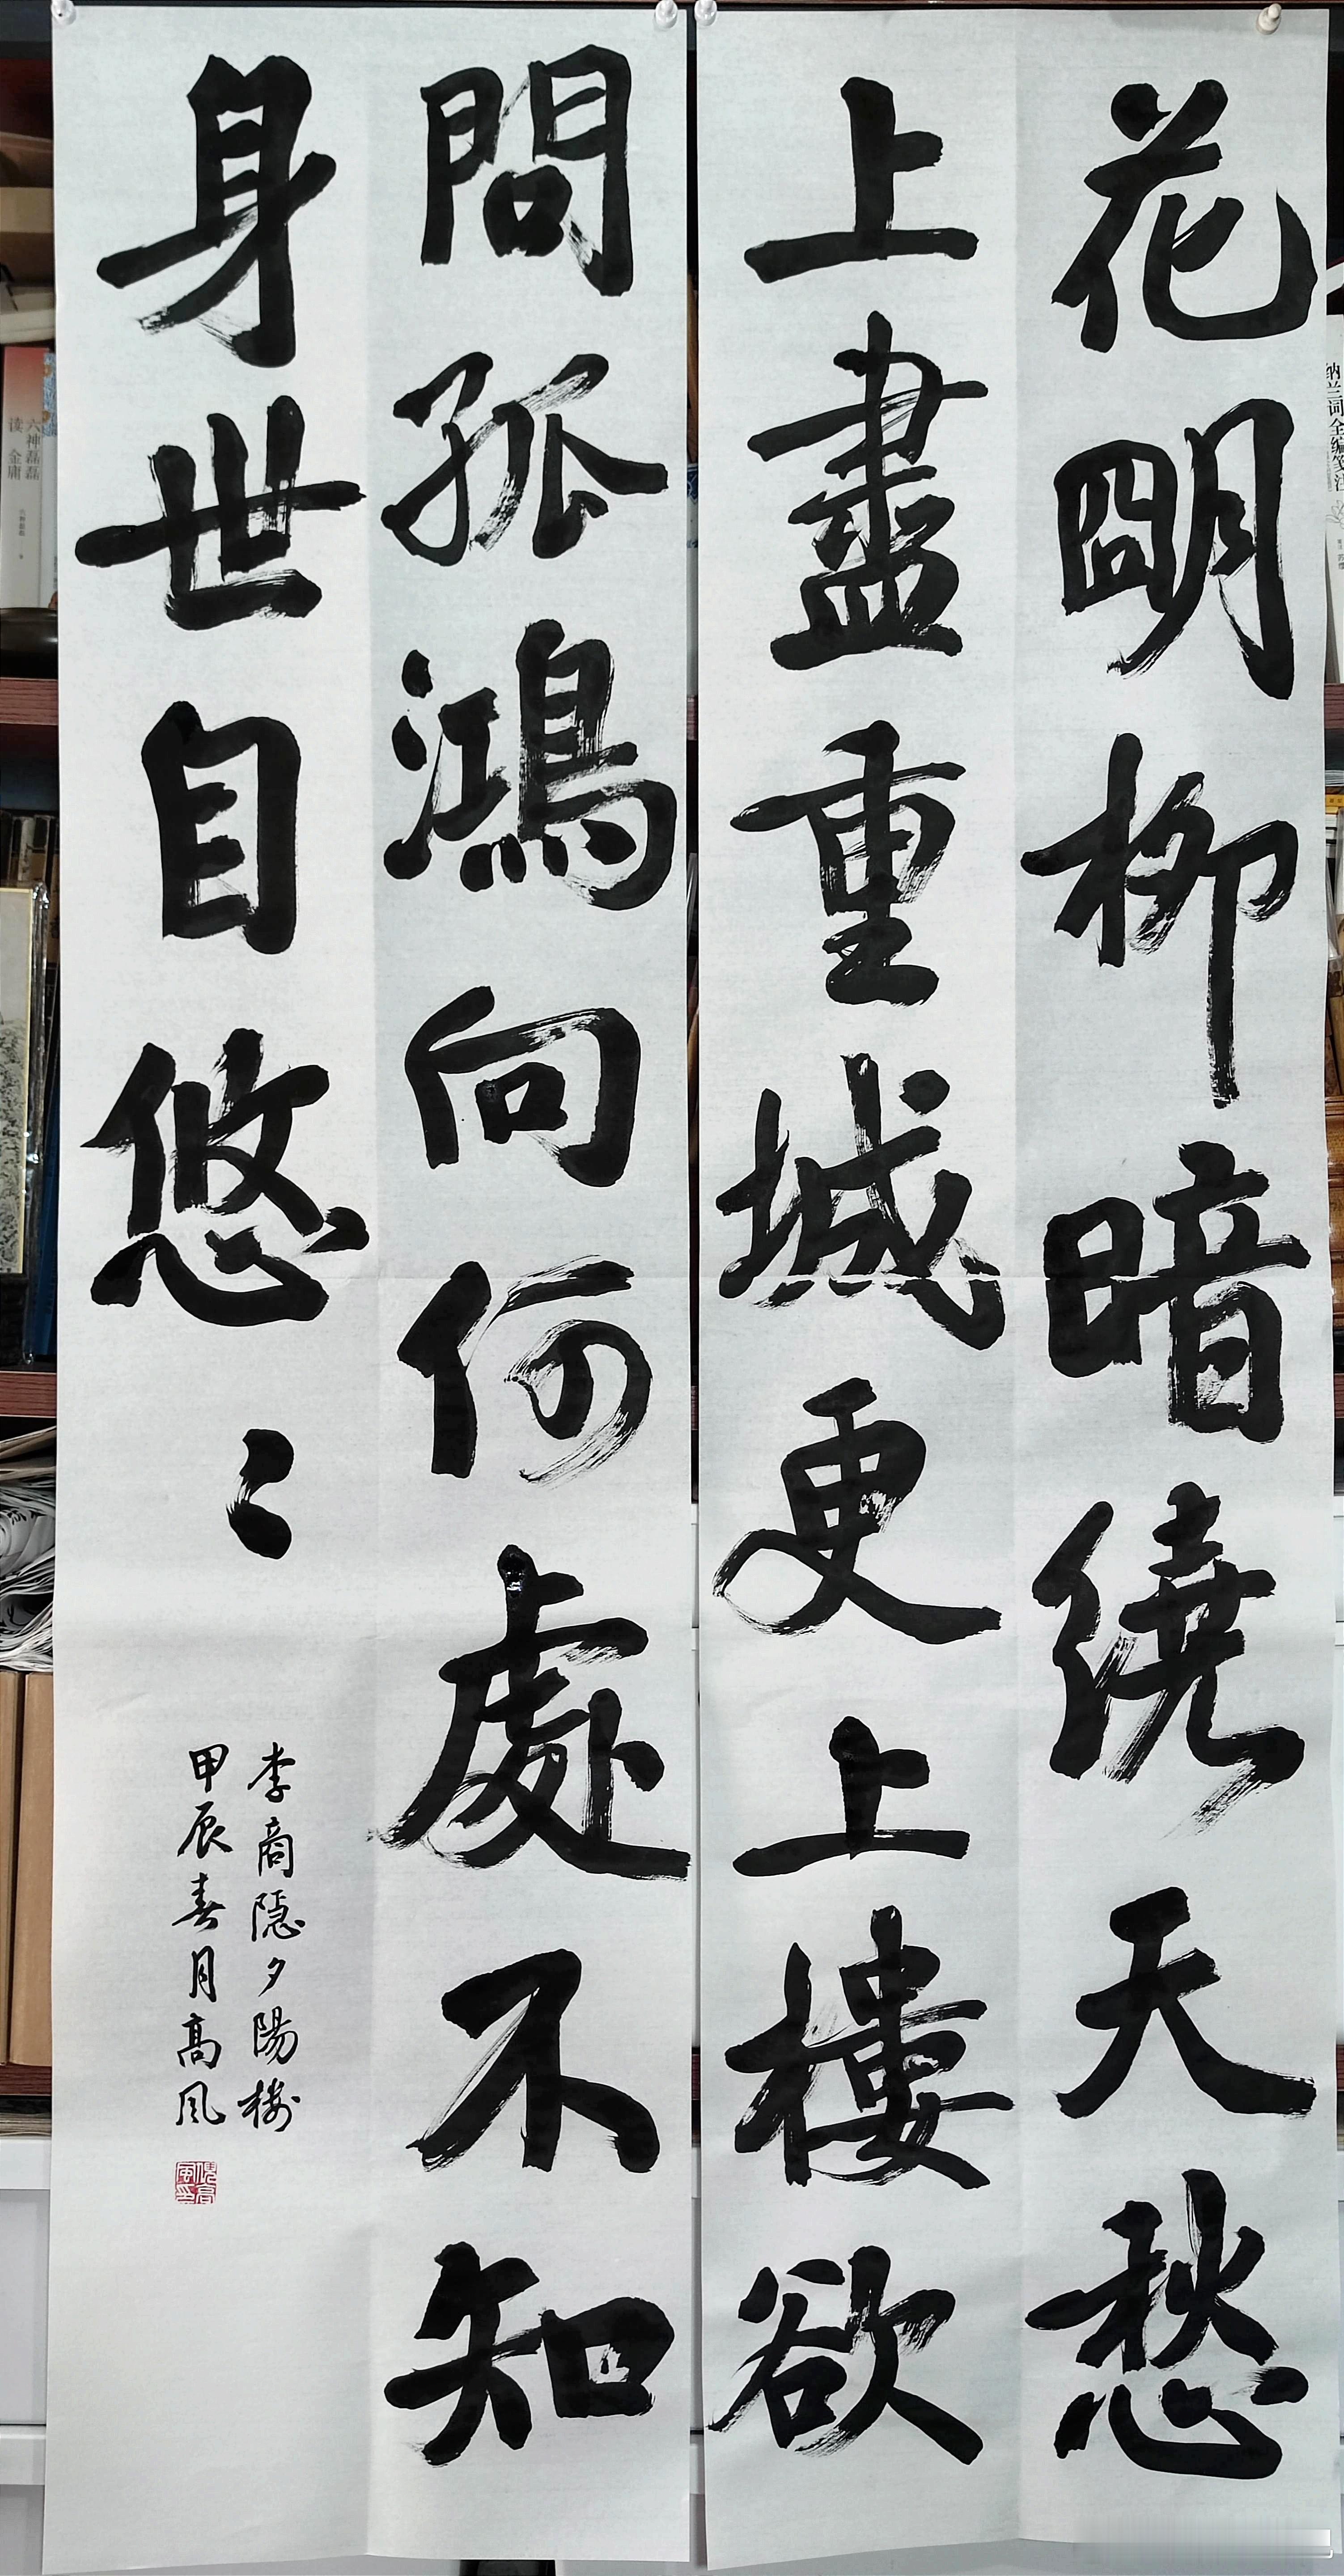 花明柳暗繞天愁
上盡重城更上樓欲
問孤鴻向何處不知
身世自悠〻
李商隱夕陽樓
甲辰春月高風
六神磊磊
读金庸
纳兰词全编笺注